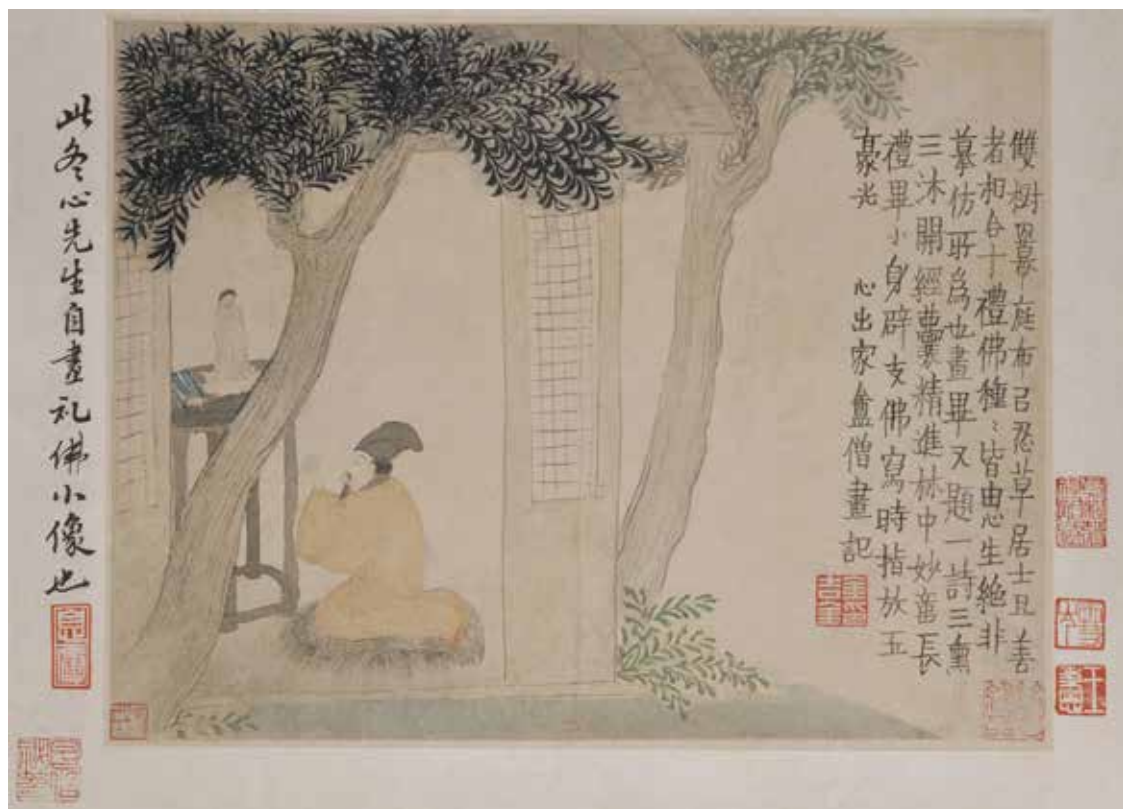 雙樹羃庭布㠯忍草居士具善
者相合十禮佛種〻皆由心生絕非
摹仿所為也畫畢又題一詩三熏
三沐開經囊精進林中妙長
禮畢小身辟支佛寫時指放五
豪光 心出家盦僧畫記
此冬心先生自畫礼佛小像也